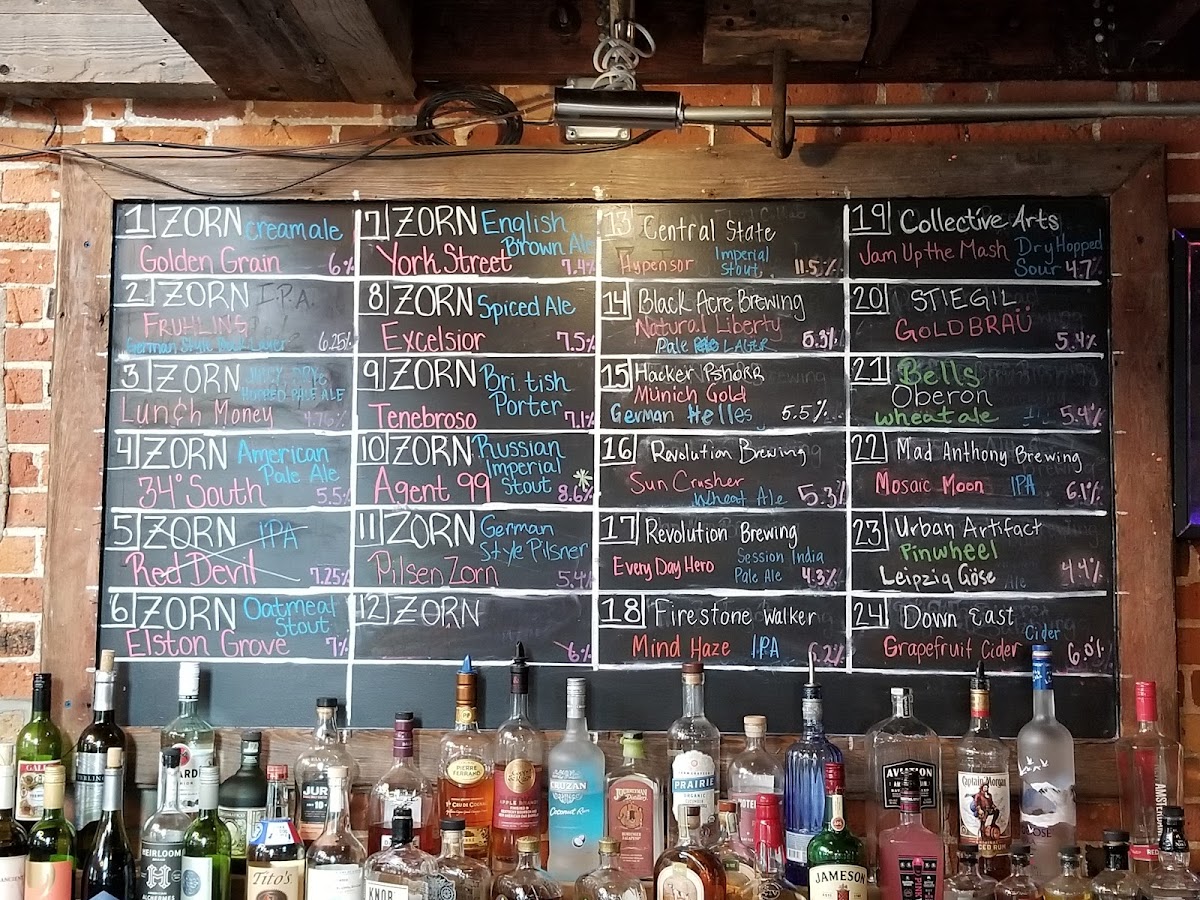 1 ZORN cream ale
Golden Grain 6%
2 ZORN I.P.A.
FRUHLING
German Style Bock Lager 6.25%
3 ZORN JUICY DRY
HOPPED PALE ALE
Lunch Money 4.76%
4 ZORN American
Pale Ale
34° South 5.5%
5 ZORN IPA
Red Devil 7.25%
6 ZORN Oatmeal
Stout
Elston Grove 7%
7 ZORN English
Brown Ale
York Street 7.4%
8 ZORN Spiced Ale
Excelsior 7.5%
9 ZORN British
Porter
Tenebroso 7.1%
10 ZORN Russian
Imperial
Stout
Agent 99 8.6%
11 ZORN German
Style Pilsner
Pilsen Zorn 5.4%
12 ZORN
6%
13 Central State
Hypensor Imperial
Stout 11.5%
14 Black Acre Brewing
Natural Liberty
Pale LAGER 5.3%
15 Hacker Pshorr
Munich Gold
German Helles 5.5%
16 Revolution Brewing
Sun Crusher
Wheat Ale 5.3%
17 Revolution Brewing
Every Day Hero Session India
Pale Ale 4.3%
18 Firestone Walker
Mind Haze IPA 6.2%
19 Collective Arts
Jam Up the Mash Dry Hopped
Sour 4.7%
20 STIEGIL
GOLDBRAÜ 5.4%
21 Bells
Oberon
wheat ale 5.4%
22 Mad Anthony Brewing
Mosaic Moon IPA 6.1%
23 Urban Artifact
Pinwheel
Leipzig Göse Ale 4.4%
24 Down East
Cider
Grapefruit Cider 6.0%
JUR
10
PIERRE
FERRAND
APPLE BRANDY
CRUZAN
Coconut Rum
PRAIRIE
ORGANIC
AVIATION
Captain Morgan
HEIRLOOM
H
Tito's
KNOB
JAMESON
PINK
AMSTERDAM
RED